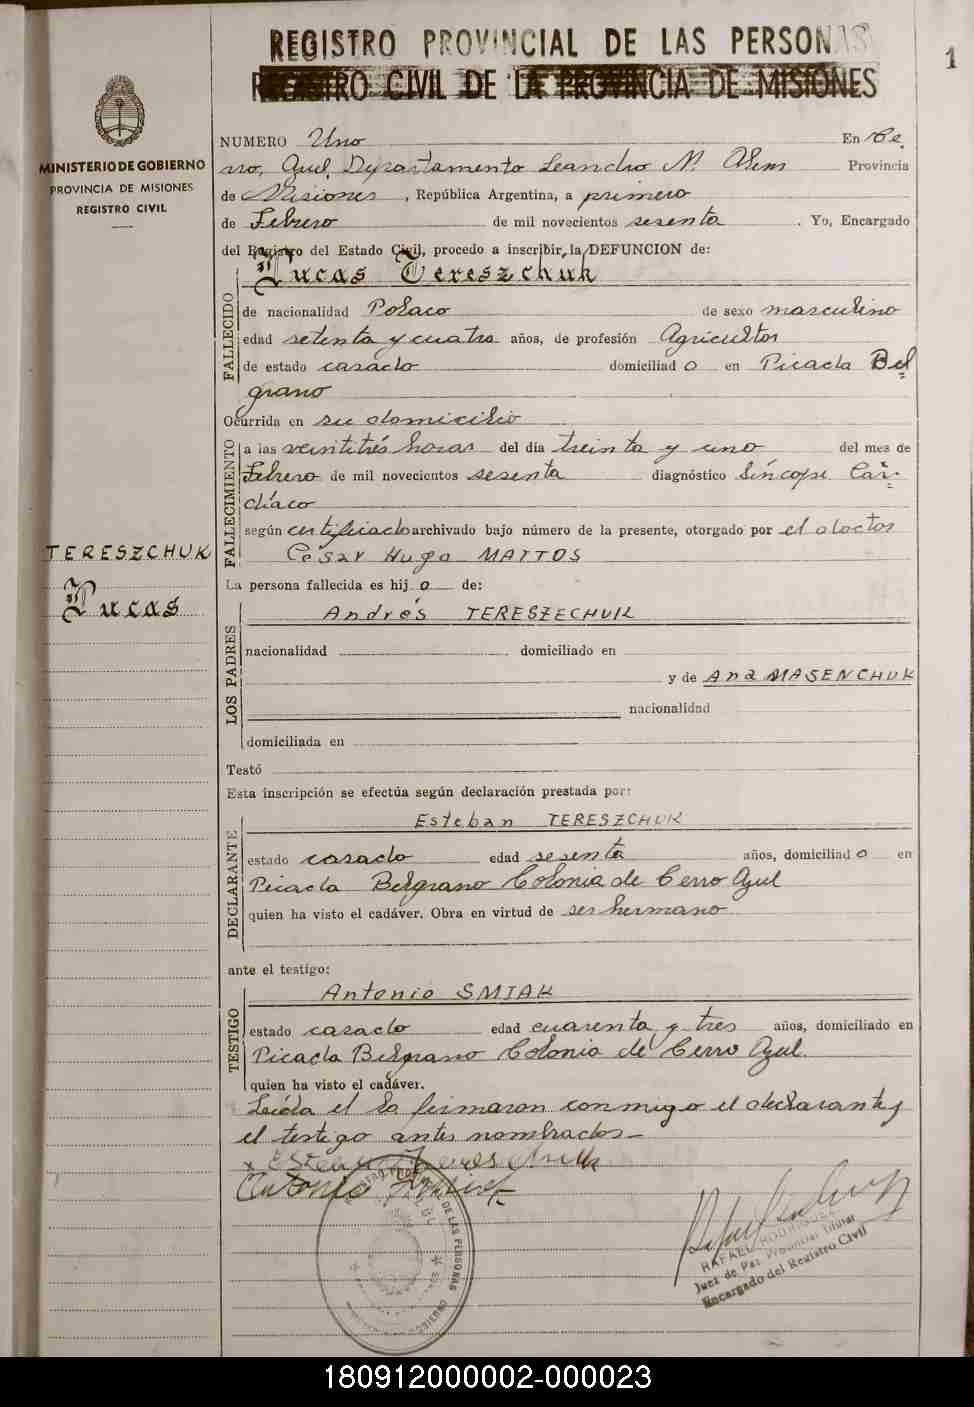 REGISTRO PROVINCIAL DE LAS PERSONAS
REGISTRO CIVIL DE LA PROVINCIA DE MISIONES
1
MINISTERIO DE GOBIERNO
PROVINCIA DE MISIONES
REGISTRO CIVIL
NUMERO Uno En Ce
rro, Azul, Departamento Leandro N. Alem Provincia
de Misiones, República Argentina, a primero
de Febrero de mil novecientos sesenta. Yo, Encargado
del Registro del Estado Civil, procedo a inscribir, la DEFUNCION de:
Lucas Tereszchuk
FALLECIDO
de nacionalidad Polaco de sexo masculino
edad setenta y cuatro años, de profesión Agricultor
de estado casado domiciliado en Picada Bel
grano
Ocurrida en su domicilio
FALLECIMIENTO
a las veintitrés horas del día treinta y uno del mes de
Febrero de mil novecientos sesenta diagnóstico Síncope Car-
díaco
según certificado archivado bajo número de la presente, otorgado por el doctor
César Hugo MATTOS
TERESZCHUK
Lucas
La persona fallecida es hijo de:
LOS PADRES
Andrés TERESZECHUK
nacionalidad domiciliado en
y de Ana MASENCHUK
nacionalidad
domiciliada en
Testó
Esta inscripción se efectúa según declaración prestada por:
DECLARANTE
Esteban TERESZCHUK
estado casado edad sesenta años, domiciliado en
Picada Belgrano Colonia de Cerro Azul
quien ha visto el cadáver. Obra en virtud de ser hermano
ante el testigo:
TESTIGO
Antonio SMIAK
estado casado edad cuarenta y tres años, domiciliado en
Picada Belgrano Colonia de Cerro Azul.
quien ha visto el cadáver.
Leída el la firmaron conmigo el declarante y
el testigo antes nombrados-
Antonio
DE LAS PERSONAS
RAFAEL RODRIGUEZ
Juez de Paz Provincial Titular
Encargado del Registro Civil
180912000002-000023